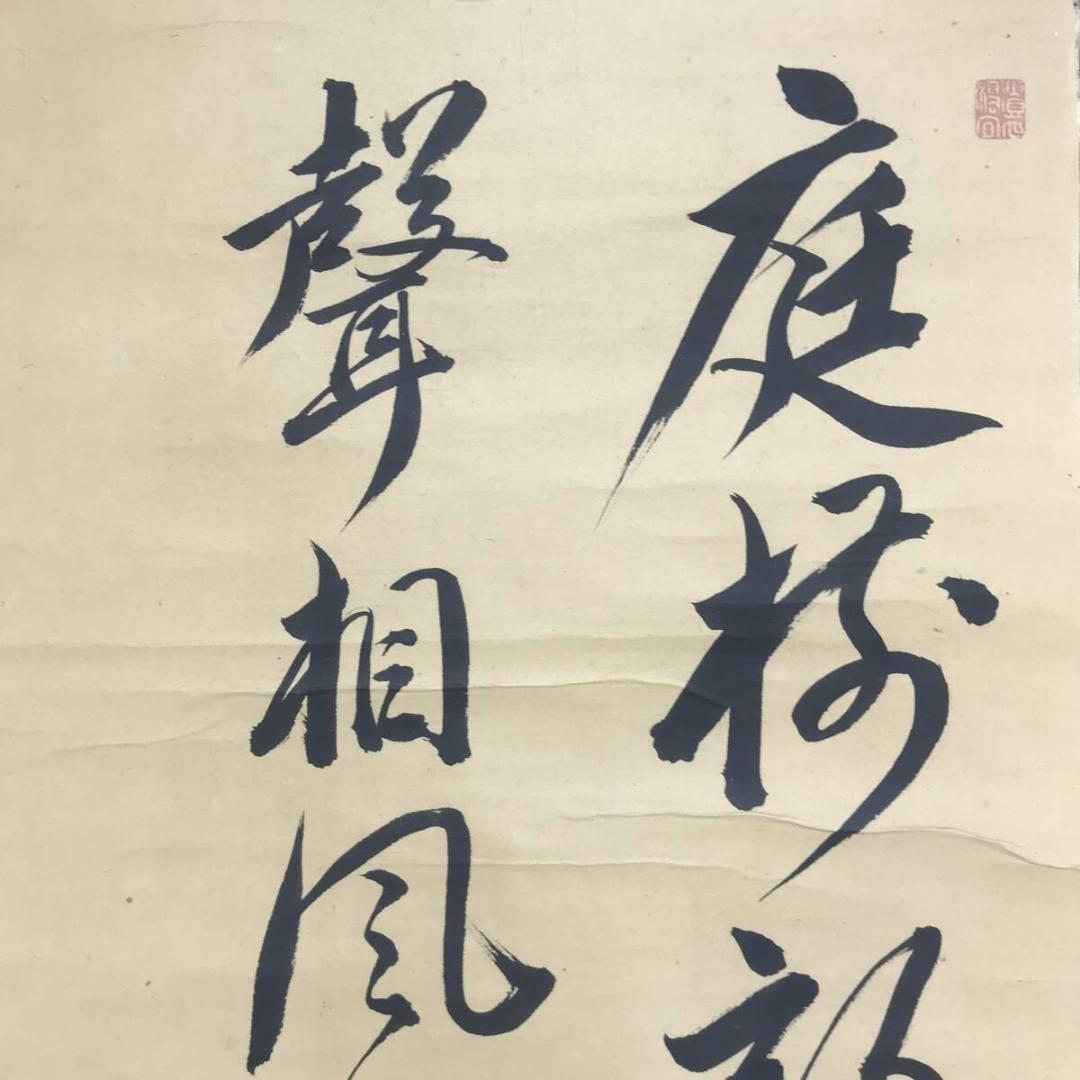 庭樹
聲相風